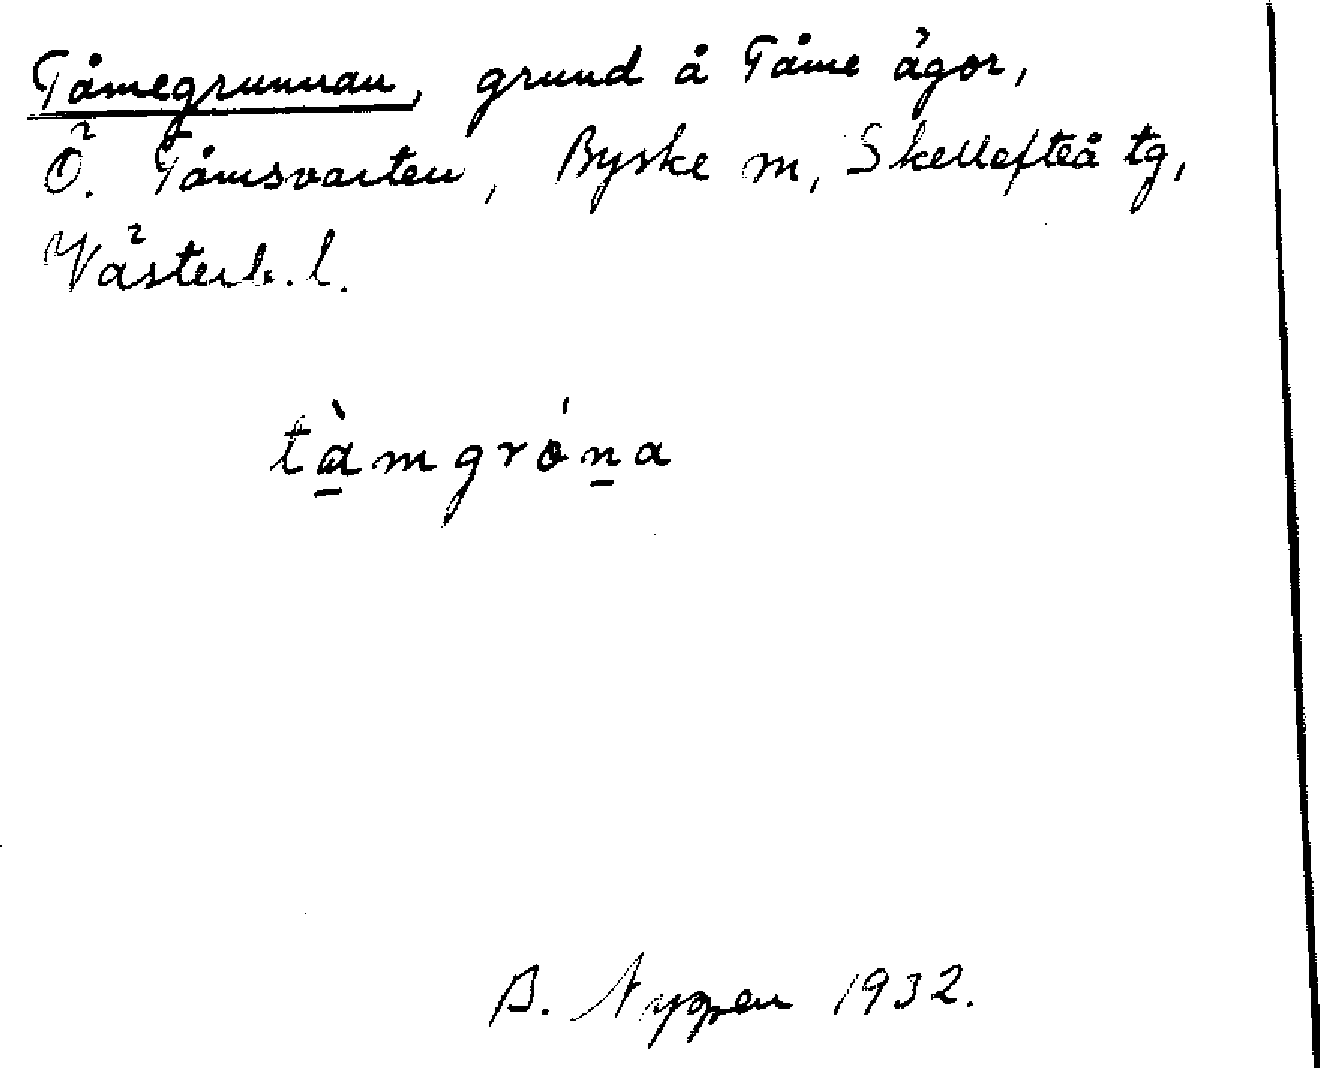 Tåmegrunnan, grund å Tåme ägor,
Ö. Tåmsvarten, Byske sn, Skellefteå tg,
Västerb. l.
tàmgróna
A. Nyppen 1932.